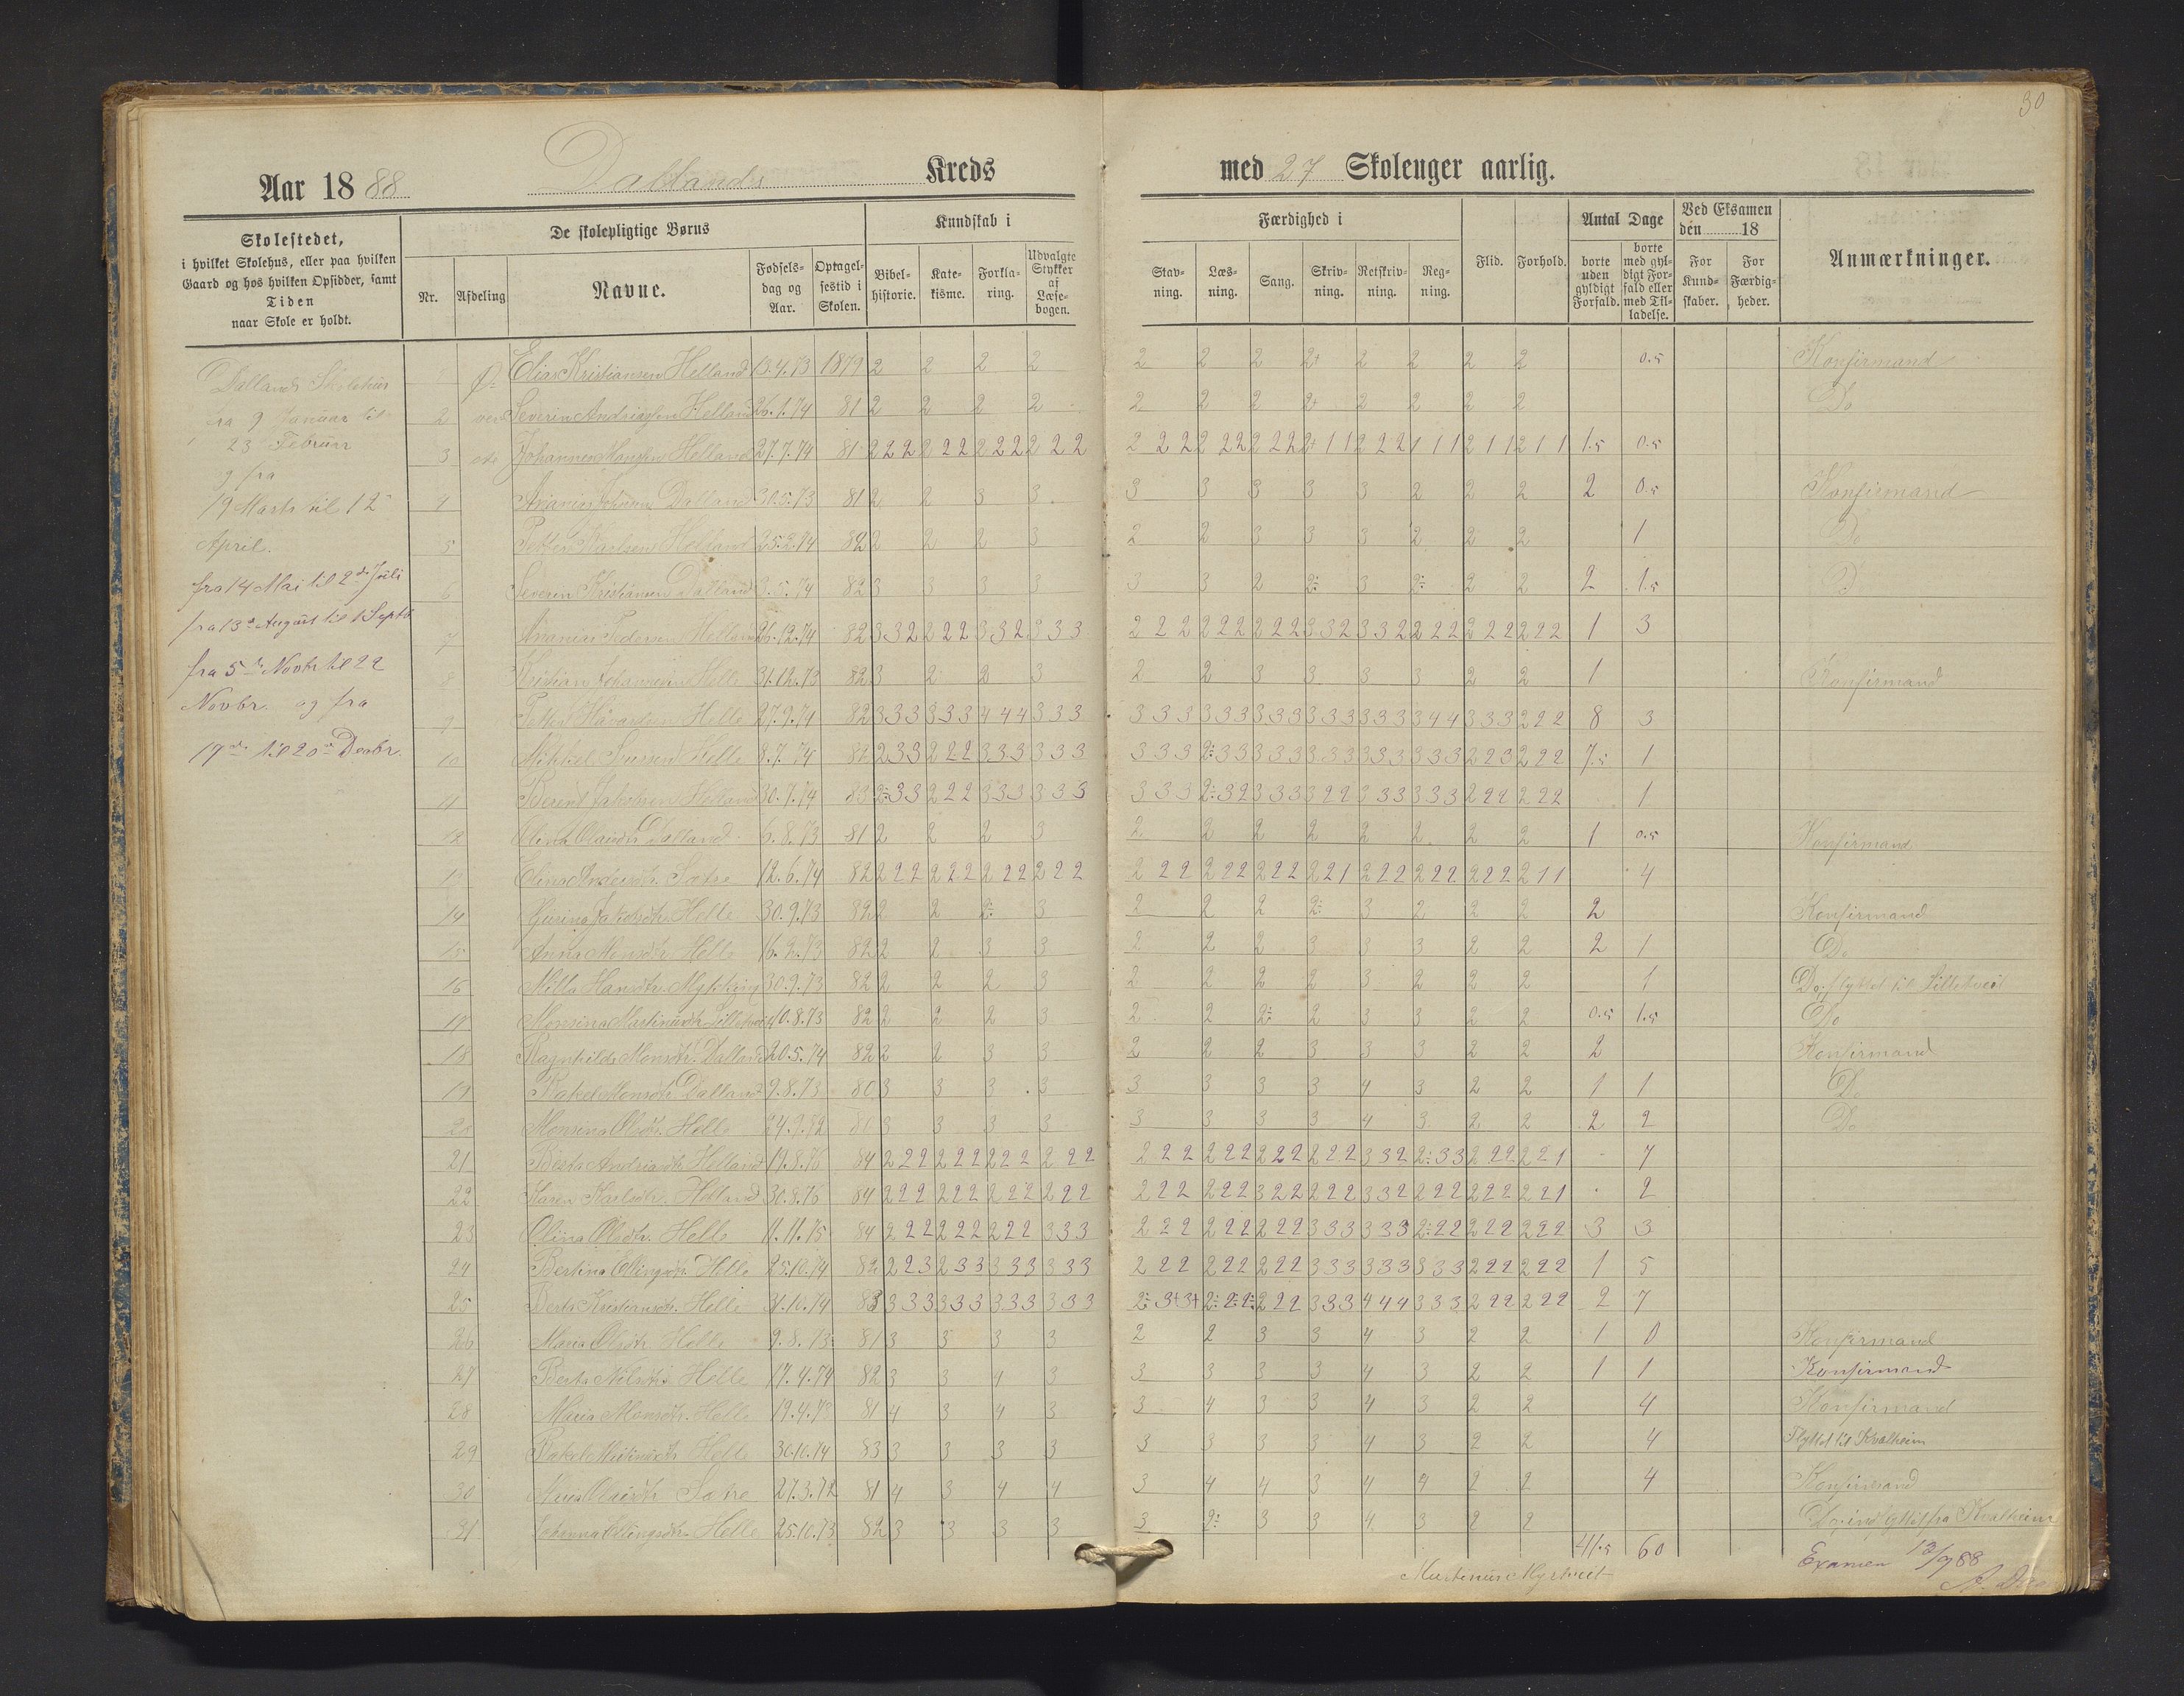 30
Aar 1888 Dallands Kreds med 27 Skoleuger aarlig.
Skolestedet, i hvilket Skolehus, eller paa hvilken Gaard og hos hvilken Opsidder, samt Tiden naar Skole er holdt.
De skolepligtige Børns
Nr. Afdeling Navne. Fødsels-dag og Aar. Optagel-sestid i Skolen.
Kundskab i
Bibel-historie. Kate-kisme. Forkla-ring. Udvalgte Stykker af Læse-bogen.
Færdighed i
Stav-ning. Læs-ning. Sang. Skriv-ning. Retskriv-ning. Reg-ning.
Flid. Forhold.
Antal Dage
borte uden gyldigt Forfald. borte med gyl-digt For-fald eller med Til-ladelse.
Ved Eksamen den 18
For Kund-skaber. For Færdig-heder.
Anmærkninger.
Dallands Skolehus
fra 9 Januar til
23 Februar
og fra
19 Marts til 12
April.
fra 14 Mai til 2de Juli
fra 13de August til 1 Septb
fra 5te Novbr til 22
Novbr. og fra
19de til 20de Decbr.
Elias Kristiansen Helland 13.4.73 1879 2 2 2 2 2 2 2 2+ 2 2 2 2 0.5 Konfirmand
2 Severin Andreassen Helland 26.1.74 81 2 2 2 2 2 2 2 2+ 2 2 2 2 Do
3 Johannes Monsen Helland 27.7.74 81 222 222 222 222 222 222 222 2+11 222 111 211 211 1.5 0.5
4 Ananias Dalland 30.5.73 81 2 2 3 3 3 3 3 3 3 2 2 2 2 0.5 Konfirmand
5 Petter Karlsen Helland 25.2.74 82 2 2 2 3 2 2 3 3 3 2 2 2 1 Do
6 Severin Kristiansen Dalland 3.5.74 82 3 3 3 3 3 3 2 2- 3 2- 2 2 2 1.5 Do
7 Ananias Pedersen Helland 26.12.74 82 332 222 332 333 222 222 222 332 332 222 222 222 1 3
8 Kristian Johannessen Helle 31.12.73 82 3 2 2 3 2 2 3 3 3 3 2 2 1 Konfirmand
9 Petter Håvardsen Helle 27.9.74 82 333 333 444 333 333 333 333 333 333 344 333 222 8 3
10 Mikkel Iversen Helle 8.7.74 81 233 222 333 333 333 2-33 333 333 333 333 223 222 7.5 1
11 Berent Jakobsen Helland 30.7.74 83 2-33 222 333 333 333 2-32 333 322 333 333 222 222 1
12 Olina Olaisdtr. Dalland 6.8.73 81 2 2 2 3 2 2 2 2 2 2 2 2 1 0.5 Konfirmand
13 Elina Andersdtr. Sætre 12.6.74 82 222 222 222 222 222 222 222 221 222 222 222 211 4
14 Gurina Jakobsdtr. Helle 30.9.73 82 2 2 2- 3 2 2 2 2- 3 2 2 2 2 Konfirmand
15 Anna Monsdtr. Helle 16.2.73 82 2 2 3 3 2 2 2 3 3 3 2 2 2 1 Do
16 Milla Hansdtr. Myking 30.9.73 82 2 2 2 3 2 2 2 2 3 2 2 2 1 Do, flyttet til Lilletveit
17 Monsina Martinusdtr. Lilletveit 10.8.73 82 2 2 2 3 2 2 2- 2 3 3 2 2 0.5 1.5 Do
18 Ragnhilde Monsdtr. Dalland 20.5.74 82 2 2 3 3 2 2 2 3 3 3 2 2 2 Konfirmand
19 Rakel Monsdtr. Dalland 9.8.73 80 3 3 3 3 3 3 3 3 4 3 2 2 1 1 Do
20 Monsina Olsdtr. Helle 24.9.72 80 3 3 3 3 3 3 3 3 4 3 2 2 2 2 Do
21 Berta Andreasdtr Helland 19.8.76 84 222 222 222 222 222 222 222 222 332 2-33 222 221 7
22 Karen Karlsdtr. Helland 30.8.76 84 222 222 222 222 222 222 322 222 332 222 222 221 2
23 Olina Olsdtr. Helle 11.11.75 84 222 222 222 333 222 222 222 333 333 2-22 222 222 3 3
24 Bertina Ellingsdtr. Helle 25.10.74 82 223 233 333 333 222 222 222 333 333 333 222 222 1 5
25 Berta Kristiansdtr. Helle 31.10.74 83 333 333 333 333 2-3+3+ 2-2-2- 222 333 444 333 222 222 2 7
26 Maria Olsdtr Helle 9.8.73 81 3 3 3 3 2 2 3 3 4 3 2 2 1 0 Konfirmand
27 Berta Nilsdtr. Helle 17.4.74 82 3 3 4 3 3 3 3 3 4 3 2 2 1 1 Konfirmand
28 Maria Monsdtr. Helle 19.4.73 81 4 3 4 3 3 4 3 3 4 3 2 2 4 Konfirmand
29 Rakel Helle 30.10.74 83 3 3 3 3 3 3 3 3 4 3 2 2 4 Flyttet til Kvalheim
30 Anna Olaisdtr Sætre 27.3.72 81 4 3 4 4 3 4 4 3 4 4 2 2 4 Konfirmand
31 Johanna Ellingsdtr. Helle 25.10.73 82 3 3 3 3 3 2- 3 3 4 3 2 2 Do, indflyttet fra Kvalheim
41.5 60
Martinus Myrtveit
Examen 13/9 88